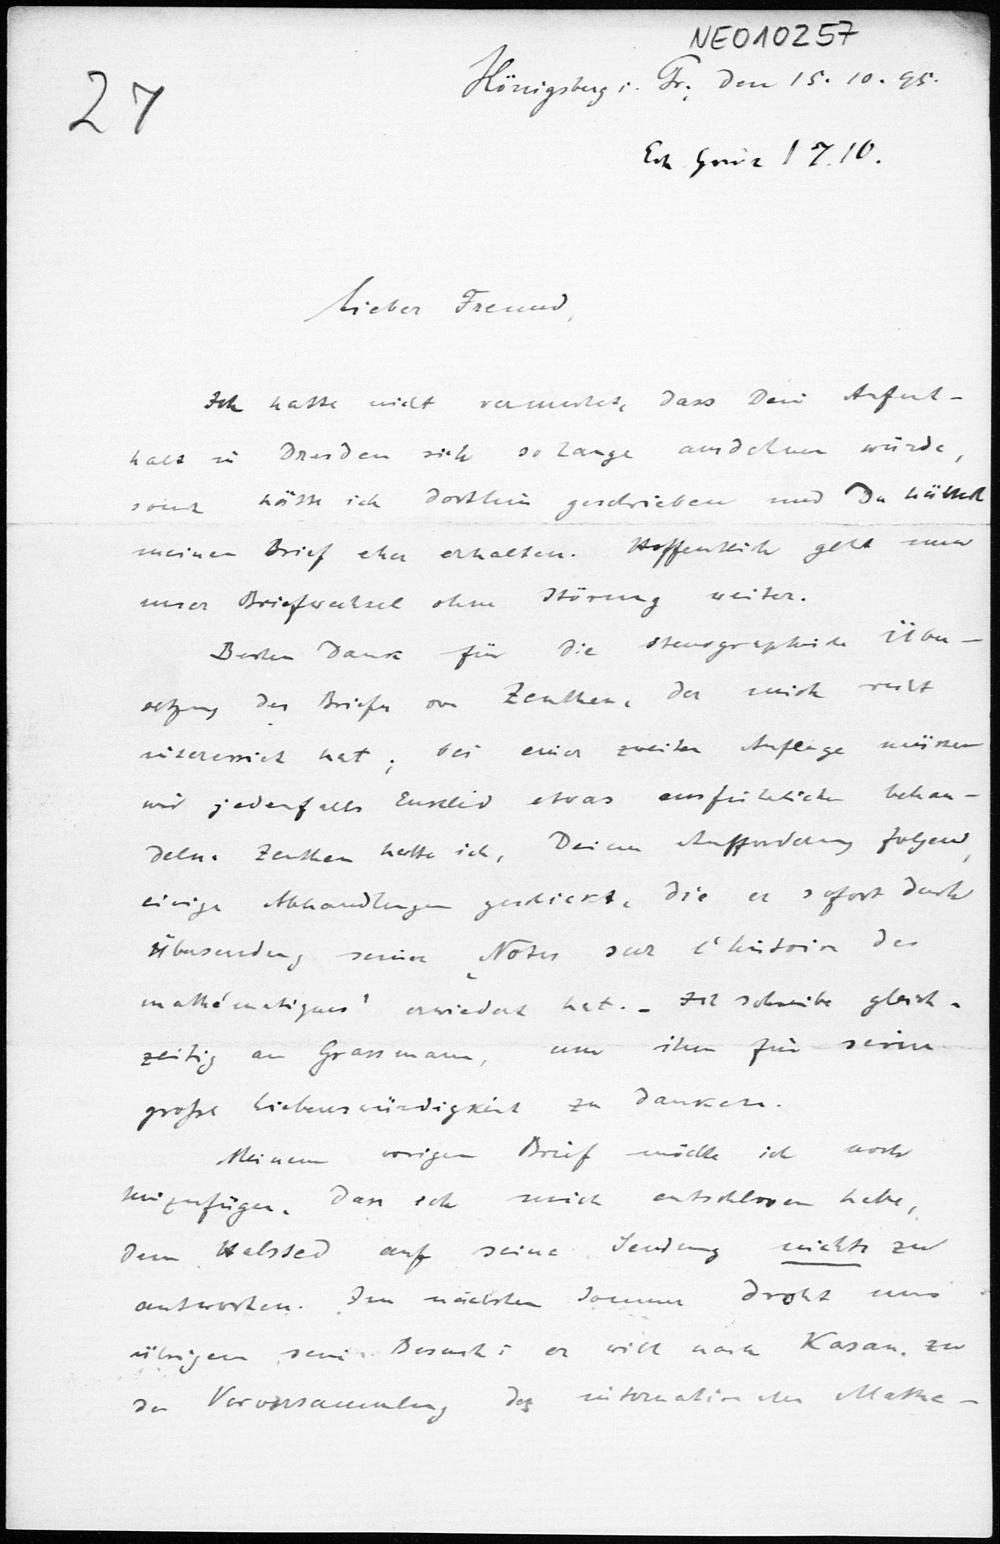 NEO10257
27
Königsberg i. Pr. den 15. 10. 95.
17.10.
Lieber Freund,
Ich hatte nicht vermuthet, dass Dein Aufent-
halt in Dresden sich so lange ausdehnen würde,
sonst hätte ich dorthin geschrieben und Du hättest
meinen Brief eher erhalten. Hoffentlich geht nun
unser Briefwechsel ohne Störung weiter.
Besten Dank für die stenographische Über-
setzung des Briefes von Zeuthen, der mich recht
interessirt hat; bei einer zweiten Auflage müssen
wir jedenfalls Euklid etwas ausführlicher behan-
deln. Zeuthen hatte ich, Deiner Aufforderung folgend,
einige Abhandlungen geschickt, die er sofort durch
Übersendung seiner „Notes sur l'histoire des
mathématiques" erwiedert hat. – Ich schreibe gleich-
zeitig an Grassmann, um ihm für seine
große Liebenswürdigkeit zu danken.
Meinem vorigen Brief möchte ich noch
hinzufügen, dass ich mich entschlossen habe,
dem Halsted auf seine Sendung nichts zu
antworten. Den nächsten Sommer droht uns
übrigens sein Besuch: er will nach Kasan, zu
der Vorversammlung des internationalen Mathe-